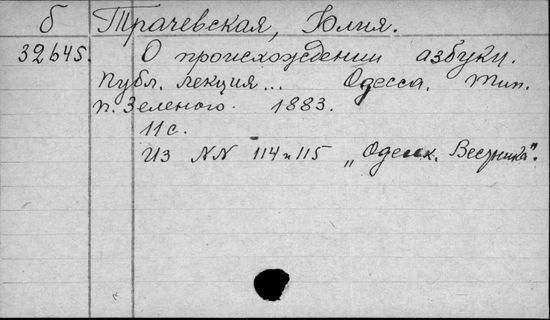 б Трачевская, Юлия.
32645. О происхождении азбуки.
Публ. лекция... Одесса. Тип.
п. Зеленого. 1883.
11 с.
Из NN 114 и 115 „Одесск. Вестника".